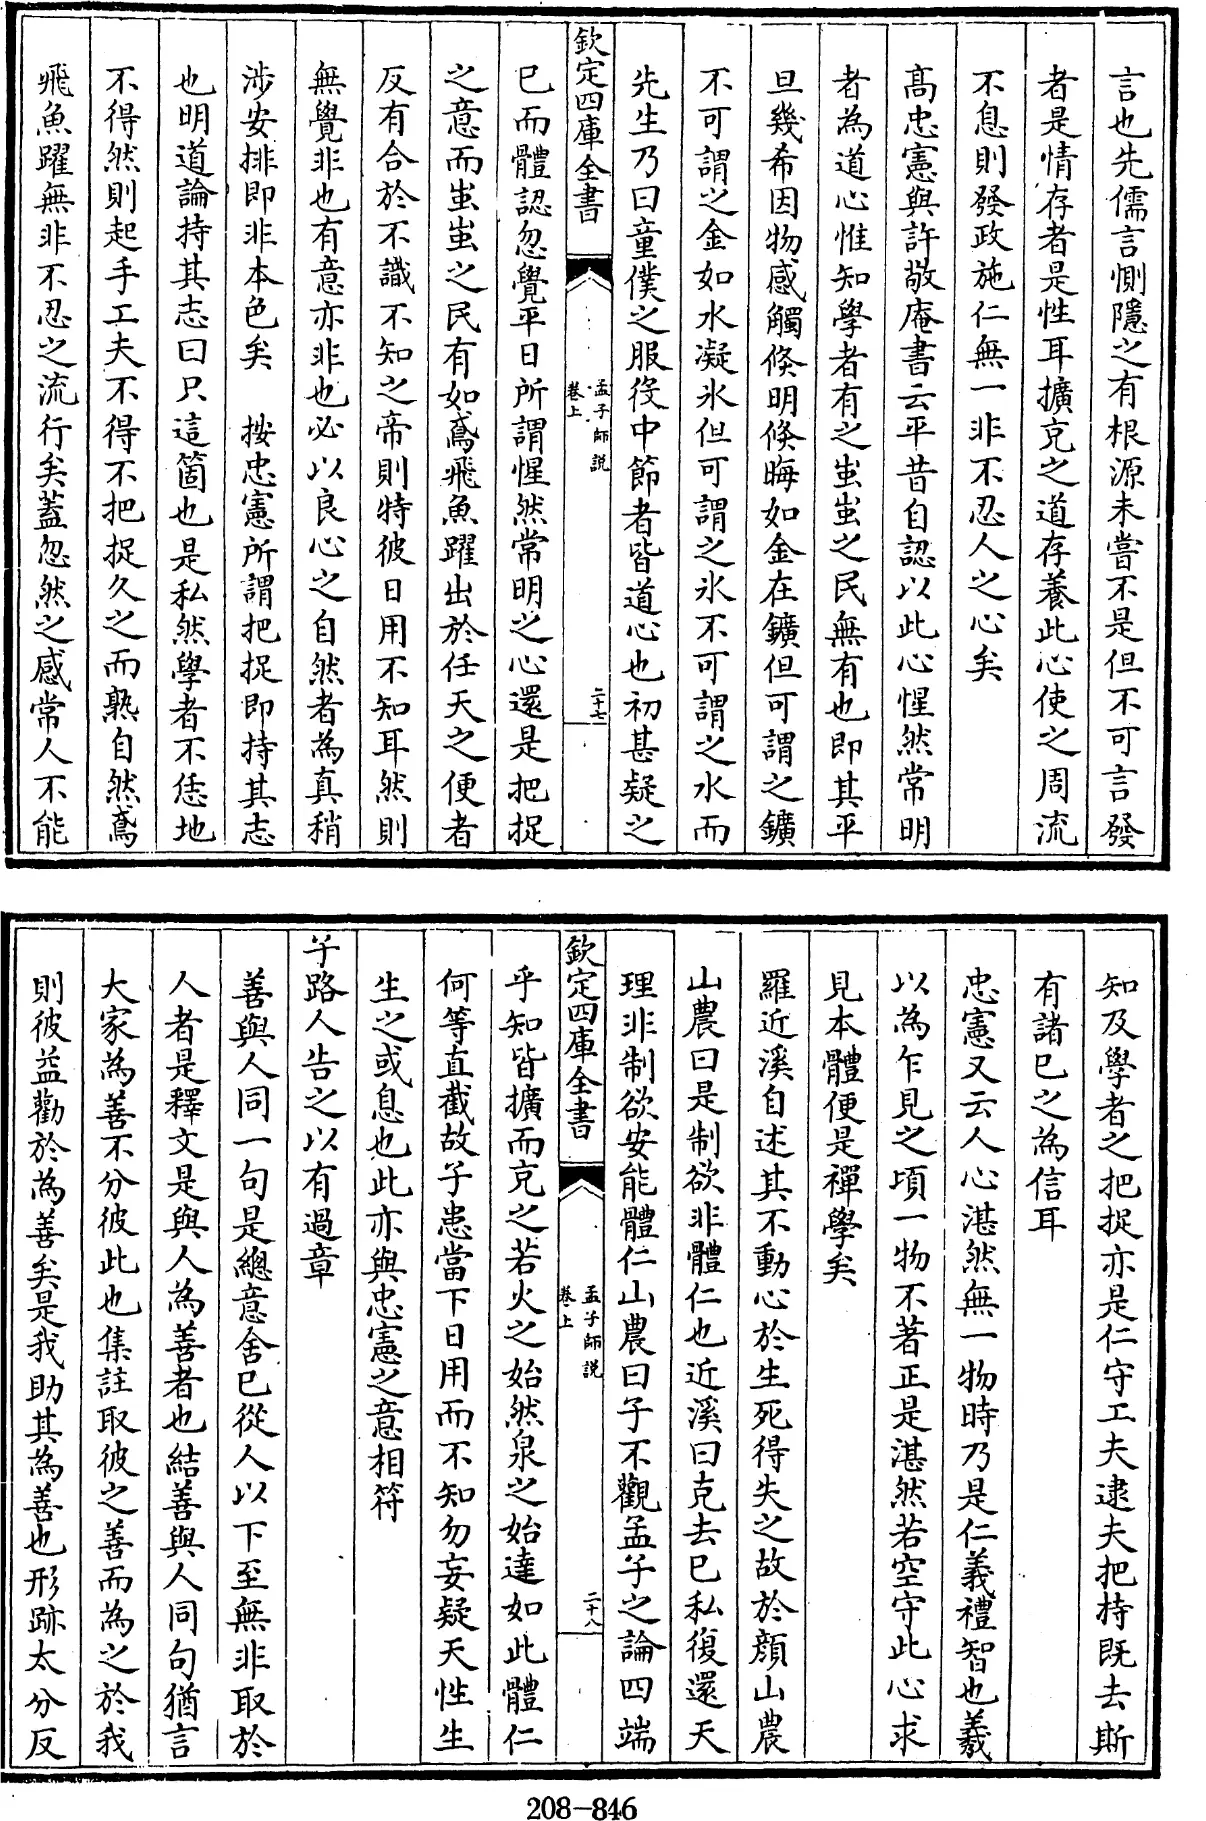 言也先儒言惻隱之有根源未嘗不是但不可言發
者是情存者是性耳擴充之道存養此心使之周流
不息則發政施仁無一非不忍人之心矣
髙忠憲與許敬庵書云平昔自認以此心惺然常明
者為道心惟知學者有之蚩蚩之民無有也即其平
旦幾希因物感觸倏明倏晦如金在鑛但可謂之鑛
不可謂之金如水凝氷但可謂之氷不可謂之水而
先生乃曰童僕之服役中節者皆道心也初甚疑之
欽定四庫全書
孟子師說
卷上
二十七
已而體認忽覺平日所謂惺然常明之心還是把捉
之意而蚩蚩之民有如鳶飛魚躍出於任天之便者
反有合於不識不知之帝則特彼日用不知耳然則
無覺非也有意亦非也必以良心之自然者為真稍
涉安排即非本色矣　按忠憲所謂把捉即持其志
也明道論持其志曰只這箇也是私然學者不恁地
不得然則起手工夫不得不把捉久之而熟自然鳶
飛魚躍無非不忍之流行矣蓋忽然之感常人不能
知及學者之把捉亦是仁守工夫逮夫把持既去斯
有諸已之為信耳
忠憲又云人心湛然無一物時乃是仁義禮智也羲
以為乍見之頃一物不著正是湛然若空守此心求
見本體便是禪學矣
羅近溪自述其不動心於生死得失之故於顔山農
山農曰是制欲非體仁也近溪曰克去已私復還天
理非制欲安能體仁山農曰子不觀孟子之論四端
欽定四庫全書
孟子師說
卷上
二十八
乎知皆擴而充之若火之始然泉之始達如此體仁
何等直截故子患當下日用而不知勿妄疑天性生
生之或息也此亦與忠憲之意相符
子路人告之以有過章
善與人同一句是總意舍已從人以下至無非取於
人者是釋文是與人為善者也結善與人同句猶言
大家為善不分彼此也集註取彼之善而為之於我
則彼益勸於為善矣是我助其為善也形跡太分反
208-846